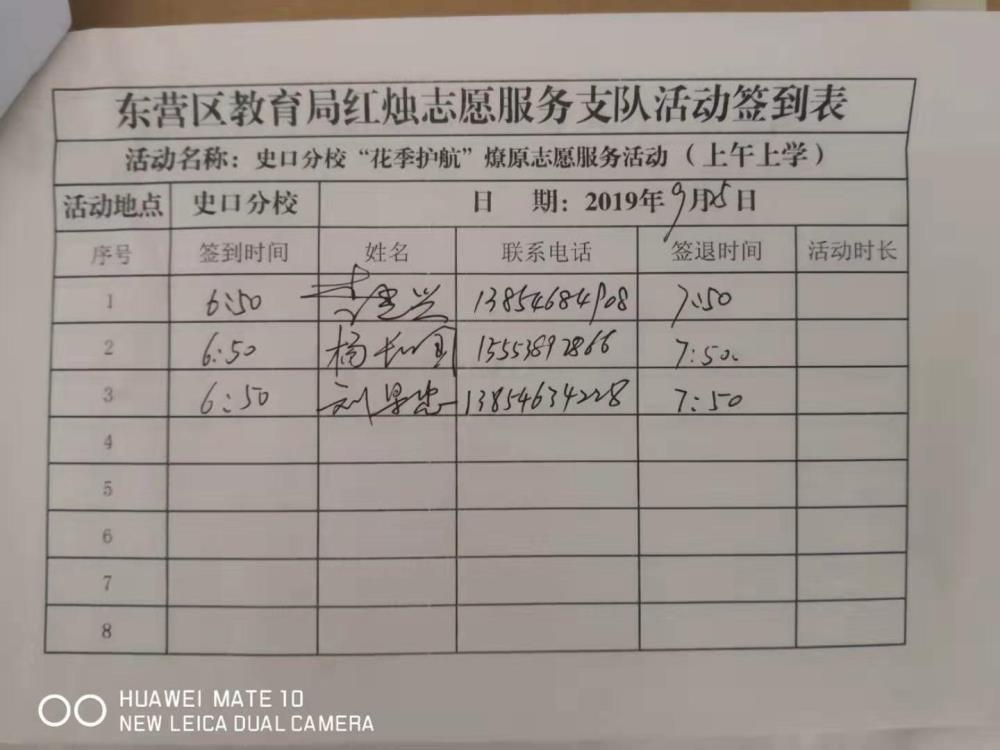 东营区教育局红烛志愿服务支队活动签到表
活动名称：史口分校“花季护航”燎原志愿服务活动（上午上学）
活动地点 史口分校 日 期：2019年9月25日
序号 签到时间 姓名 联系电话 签退时间 活动时长
1 6:50 13854684908 7:50
2 6:50 杨 15553892866 7:50
3 6:50 刘 忠 13854634228 7:50
4
5
6
7
8
HUAWEI MATE 10
NEW LEICA DUAL CAMERA